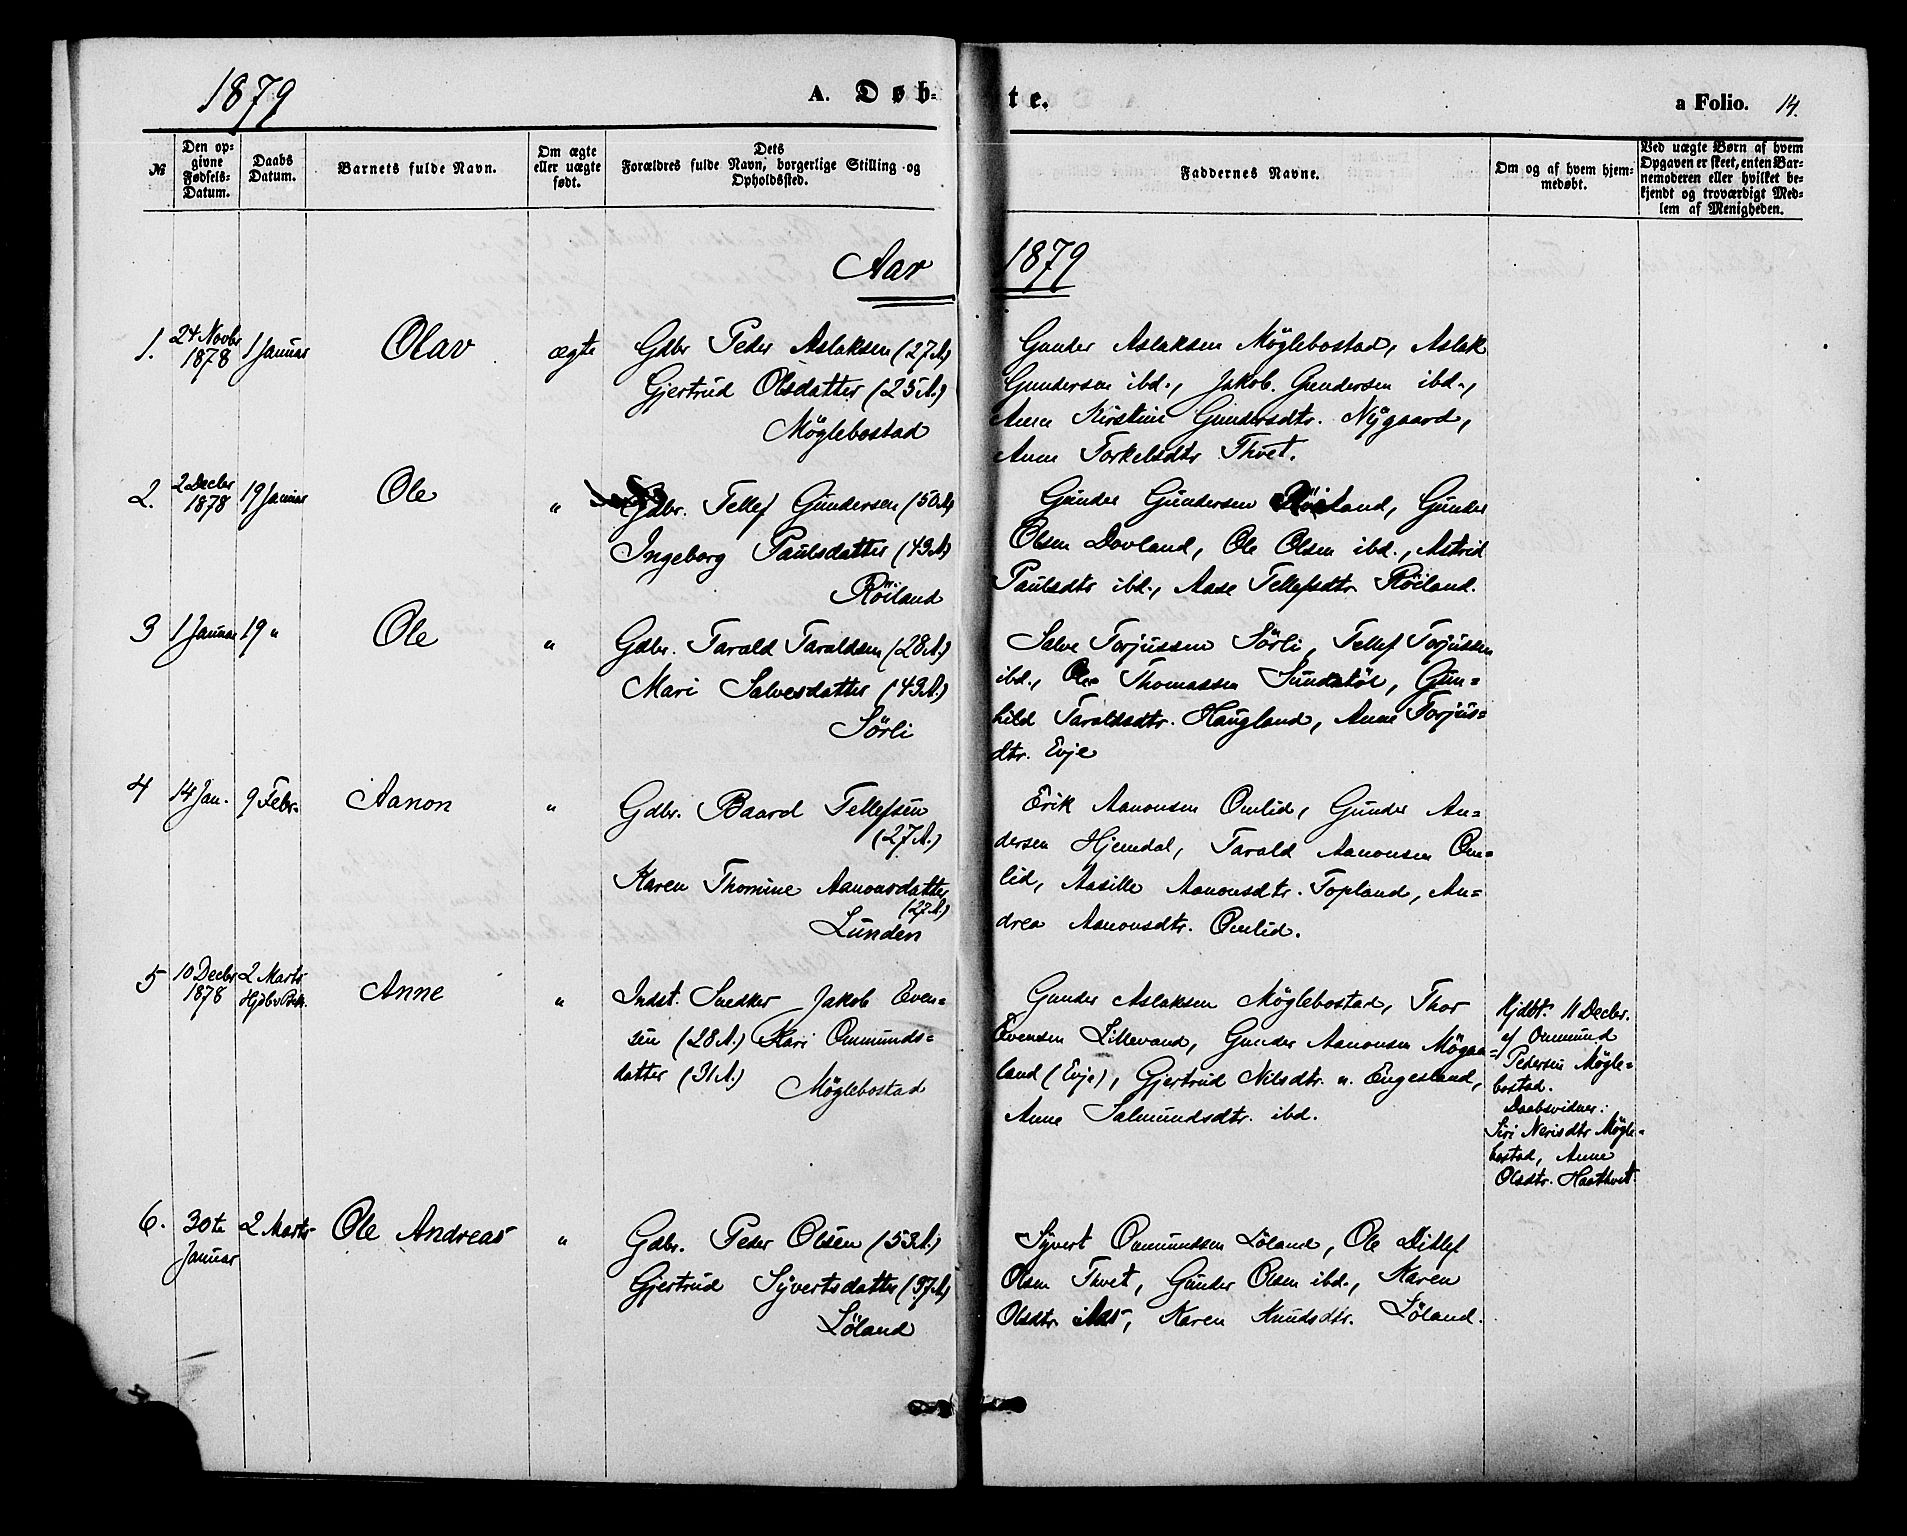 1879
A. Døb-
te.
a Folio. 14.
№
Den op-
givne
Fødsels-
Datum.
Daabs
Datum.
Barnets fulde Navn.
Om ægte
eller uægte
født.
Dets
Forældres fulde Navn, borgerlige Stilling og
Opholdssted.
Faddernes Navne.
Om og af hvem hjem-
medøbt.
Ved uægte Børn af hvem
Opgaven er skeet, enten Bar-
nemoderen eller hvilket be-
kjendt og troværdigt Med-
lem af Menigheden.
Aar 1879
1.
24 Novbr
1878
1 Januar
Olav
ægte
Gdbr Peder Aslaksen (27A)
Gjertrud Olsdatter (25A.)
Møglebostad
Gunder Aslaksen Møglebostad, Aslak
Gundersen ibd., Jakob. Gundersen ibd.,
Anne Kirstine Gundersdtr. Nygaard,
Anne Torkelsdtr Thvet.
2.
2 Decbr
1878
19 Januar
Ole
"
Gdbr. Tellef Gundersen (50A)
Ingeborg Paulsdatter (43A)
Röiland
Gunder Gundersen Röiland, Gunder
Olsen Dovland, Ole Olsen ibd., Astrid
Paulsdtr ibd., Aase Tellefsdtr Röiland.
3
1 Januar
19 "
Ole
"
Gdbr. Tarald Taraldsen (28A.)
Mari Salvesdatter (43A.)
Sörli
Salve Torjussen Sörli, Tellef Torjussen
ibd., Ole Thomassen Sundstöl, Gun=
hild Taraldsdtr. Haugland, Anne Torjus=
dtr. Evje
4
14 Jan.
9 Febr.
Aanon
"
Gdbr. Baard Tellefsen
(27A.)
Karen Thomine Aanonsdatter
(27A.)
Lunden
Erik Aanonsen Omlid, Gunder An=
dersen Hjemdal, Tarald Aanonsen Om=
lid, Aasille Aanonsdtr. Topland, An=
drea Aanonsdtr. Omlid.
5
10 Decbr
1878
2 Marts
Anne
"
Indst. Snedker Jakob Even=
sen (28A.) Kari Ommunds=
datter (31A.)
Møglebostad
Gunder Aslaksen Møglebostad, Thor
Evensen Lillevand, Gunder Aanonsen
land (Evje), Gjertrud Nilsdtr. n. Engesland,
Anne Salmundsdtr. ibd.
Hjdbt. 11 Decbr.
af Ommund
Pedersen Møgle=
bostad.
Daabsvidner:
Siri Nerisdtr Møgle=
bostad, Anne
Olsdtr.
6.
30te
Januar
2 Marts
Ole Andreas
"
Gdbr. Peder Olsen (53A.)
Gjertrud Syvertsdatter (37A)
Løland
Syvert Ommundsen Løland, Ole Ditlef
Olsen Thvet, Gunder Olsen ibd., Karen
Olsdtr. Aas, Karen Knudsdtr. Løland.